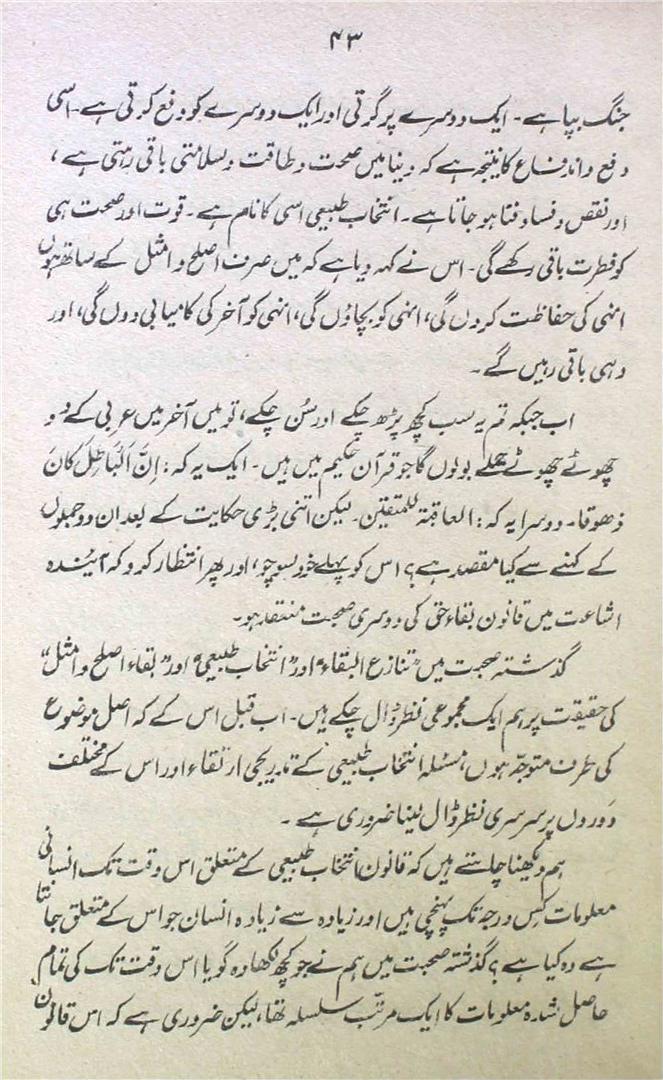 ۴۳
جنگ بپا ہے۔ ایک دوسرے پر گرتی اور ایک دوسرے کو دفع کرتی ہے۔ اسی
دفع و اندفاع کا نتیجہ ہے کہ دنیا میں صحت و طاقت و سلامتی باقی رہتی ہے،
اور نقص و فساد فنا ہو جاتا ہے۔ انتخاب طبیعی اسی کا نام ہے۔ قوت اور صحت ہی
کو فطرت باقی رکھے گی۔ اس نے کہہ دیا ہے کہ میں صرف اصلح و امثل کے ساتھ ہوں
انہی کی حفاظت کروں گی، انہی کو بچاؤں گی، انہی کو آخر کی کامیابی دوں گی، اور
وہی باقی رہیں گے۔
اب جبکہ تم یہ سب کچھ پڑھ چکے اور سُن چکے، تو میں آخر میں عربی کے دو
چھوٹے چھوٹے جملے بولوں گا جو قرآن حکیم میں ہیں۔ ایک یہ کہ: اِنَّ الْبَاطِلَ کَانَ
زھوقا۔ دوسرا یہ کہ: العاقبۃ للمتقین۔ لیکن اتنی بڑی حکایت کے بعد ان دو جملوں
کے کہنے سے کیا مقصد ہے؟ اس کو پہلے خود سوچو، اور پھر انتظار کرو کہ آئندہ
اشاعت میں قانون بقاء حق کی دوسری صحبت منعقد ہو۔
گذشتہ صحبت میں "تنازع البقاء" اور "انتخاب طبیعی" اور "بقاء اصلح و امثل"
کی حقیقت پر ہم ایک مجموعی نظر ڈال چکے ہیں۔ اب قبل اس کے کہ اصل موضوع
کی طرف متوجّہ ہوں، مسئلہ انتخاب طبیعی کے تدریجی ارتقاء اور اس کے مختلف
دَوروں پر سرسری نظر ڈال لینا ضروری ہے۔
ہم دیکھنا چاہتے ہیں کہ قانون انتخاب طبیعی کے متعلق اس وقت تک انسانی
معلومات کس درجہ تک پہنچی ہیں اور زیادہ سے زیادہ انسان جو اس کے متعلق جانتا
ہے وہ کیا ہے؟ گذشتہ صحبت میں ہم نے جو کچھ لکھا وہ گویا اس وقت تک کی تمام
حاصل شدہ معلومات کا ایک مرتّب سلسلہ تھا، لیکن ضروری ہے کہ اس قانون